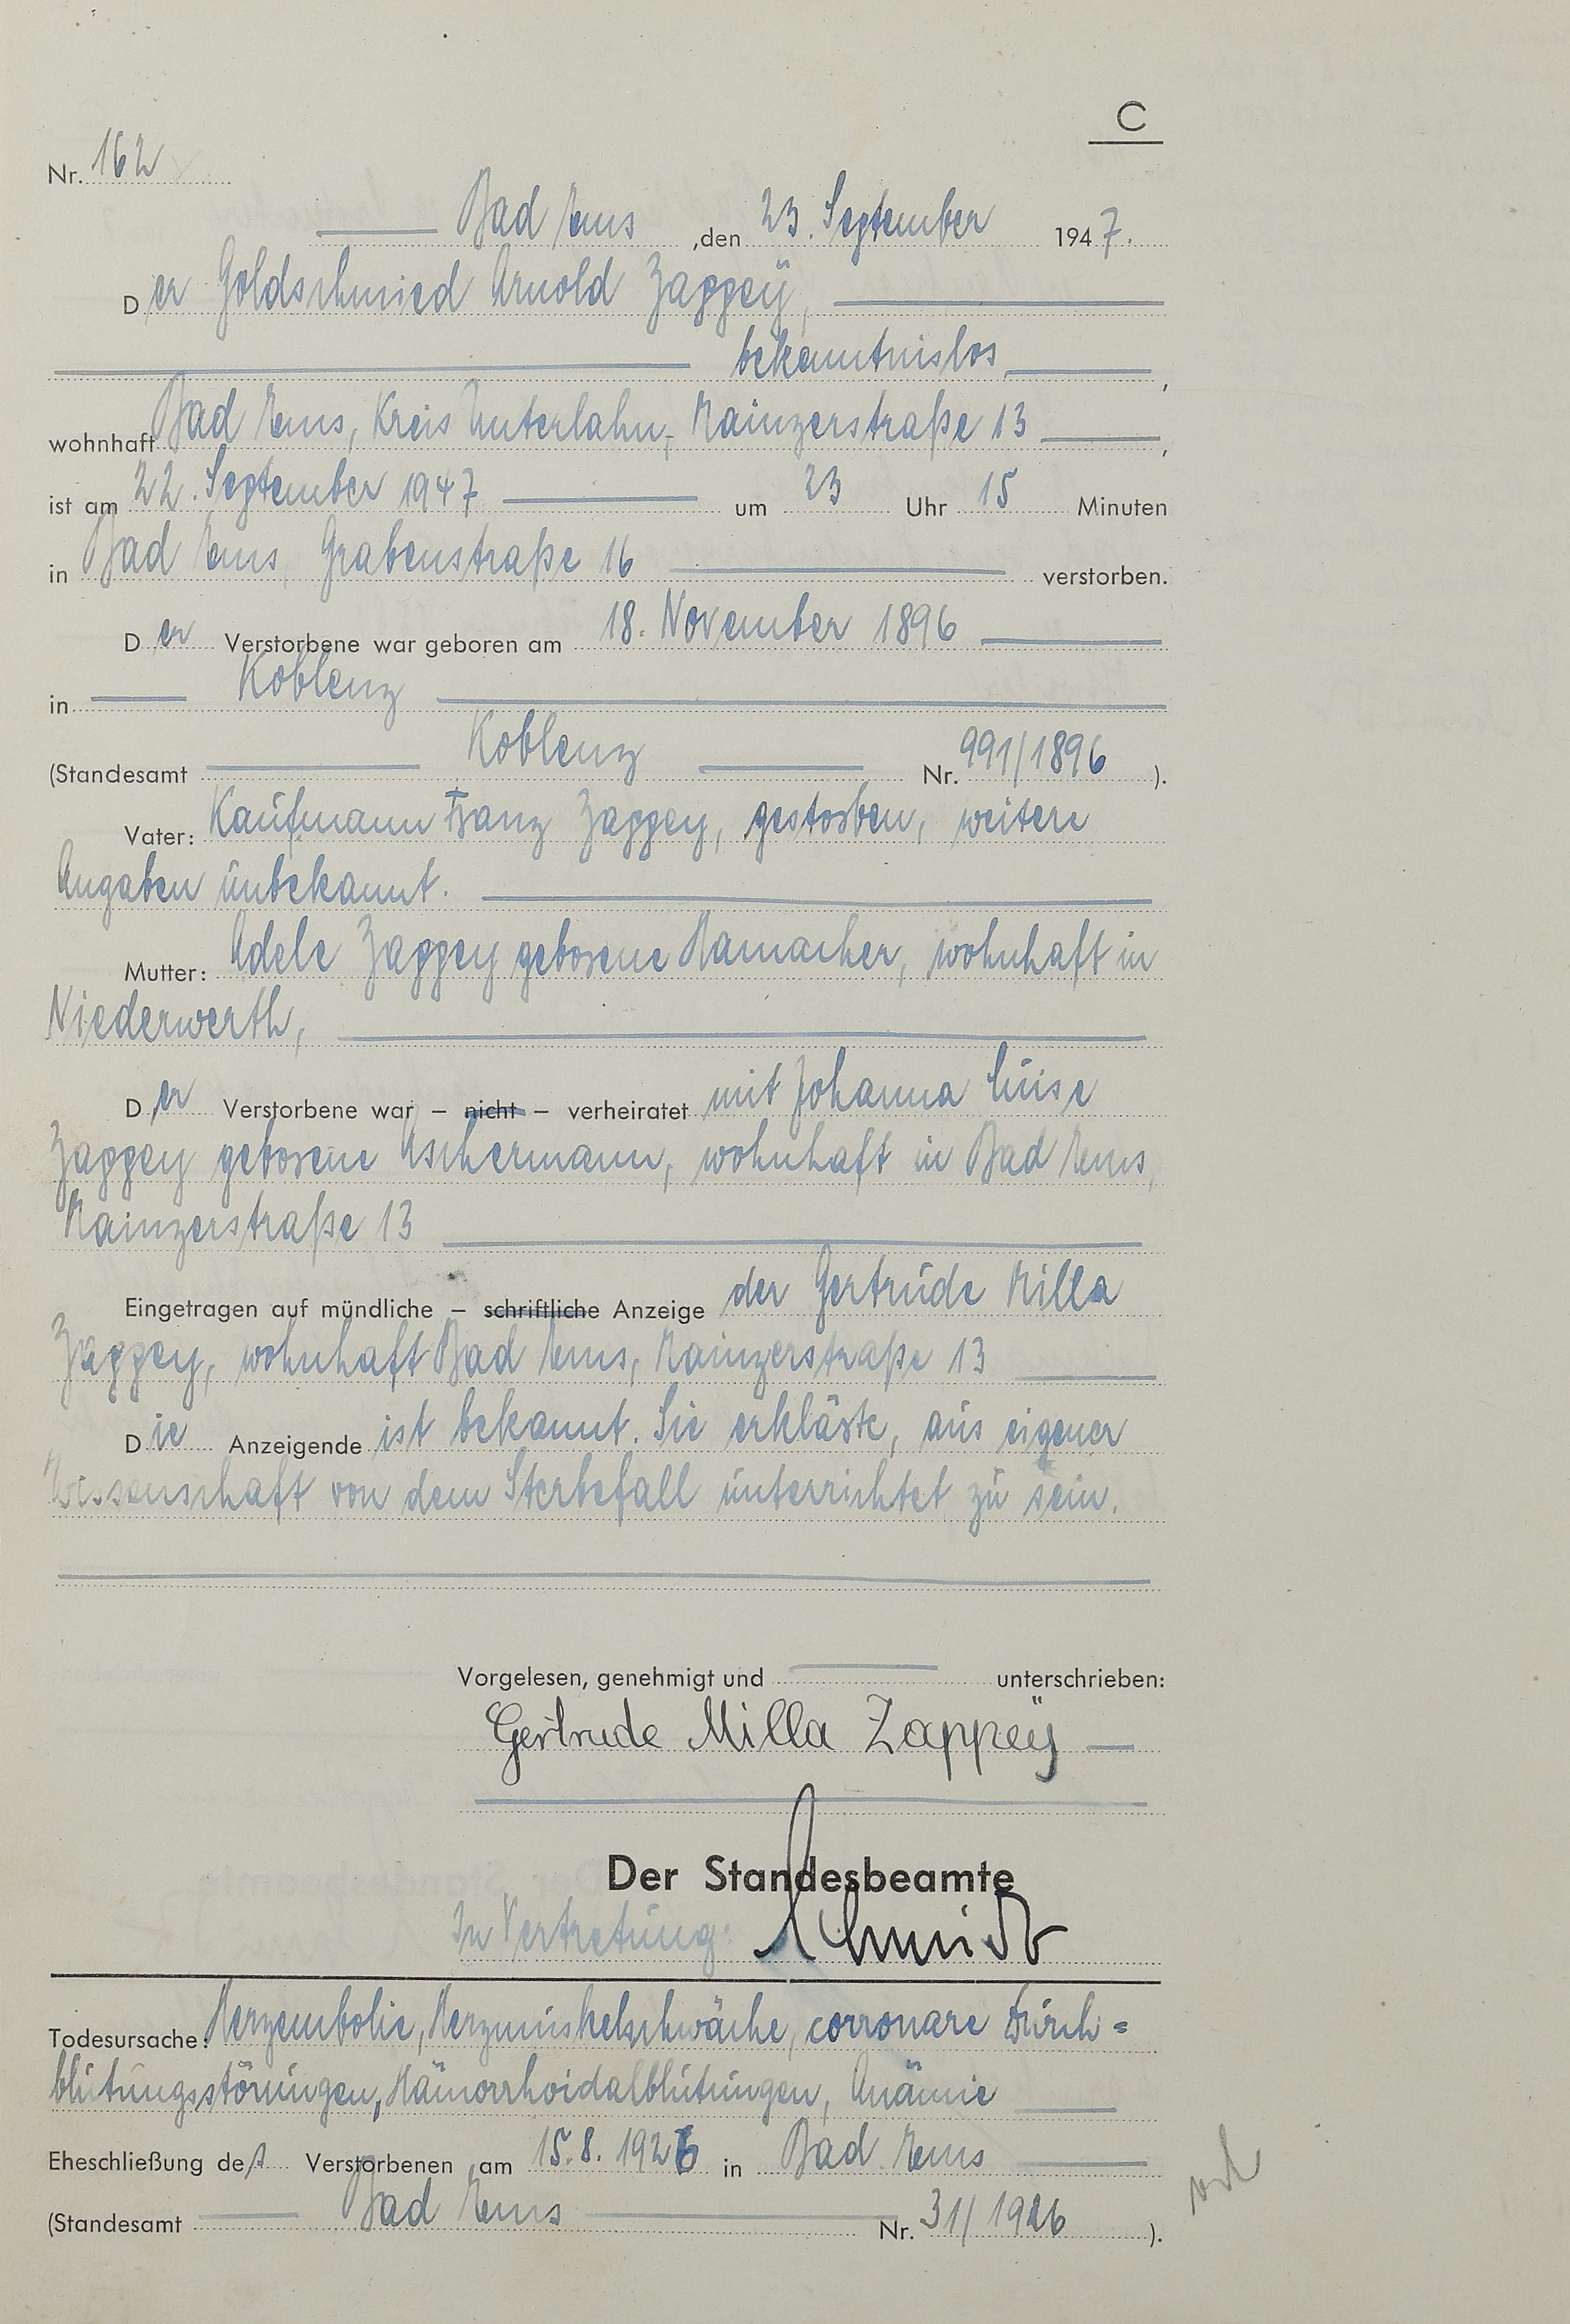 C
Nr. 162
Bad Ems, den 23. September 1947.
Der Goldschmied Arnold Zappeÿ,
bekenntnislos,
wohnhaft Bad Ems, Kreis Unterlahn, Mainzerstraße 13,
ist am 22. September 1947 um 23 Uhr 15 Minuten
in Bad Ems, Grabenstraße 16 verstorben.
Der Verstorbene war geboren am 18. November 1896
in Koblenz
(Standesamt Koblenz Nr. 991/1896 ).
Vater: Kaufmann Franz Zappey, gestorben, weitere
Angaben unbekannt.
Mutter: Adele Zappey geborene Hamacher, wohnhaft in
Niederwerth,
Der Verstorbene war – nicht – verheiratet mit Johanna Luise
Zappey geborene Aschermann, wohnhaft in Bad Ems,
Mainzerstraße 13
Eingetragen auf mündliche – schriftliche Anzeige der Gertrude Milla
Zappey, wohnhaft Bad Ems, Mainzerstraße 13
Die Anzeigende ist bekannt. Sie erklärte, aus eigener
Wissenschaft von dem Sterbefall unterrichtet zu sein.
Vorgelesen, genehmigt und unterschrieben:
Gertrude Milla Zappeÿ
Der Standesbeamte
In Vertretung: Schmidt
Todesursache: Herzembolie, Herzmuskelschwäche, corronare Durch=
blutungsstörungen, Hämorrhoidalblutungen, Anämie
Eheschließung des Verstorbenen am 15.8.1926 in Bad Ems
(Standesamt Bad Ems Nr. 31/1926 ).